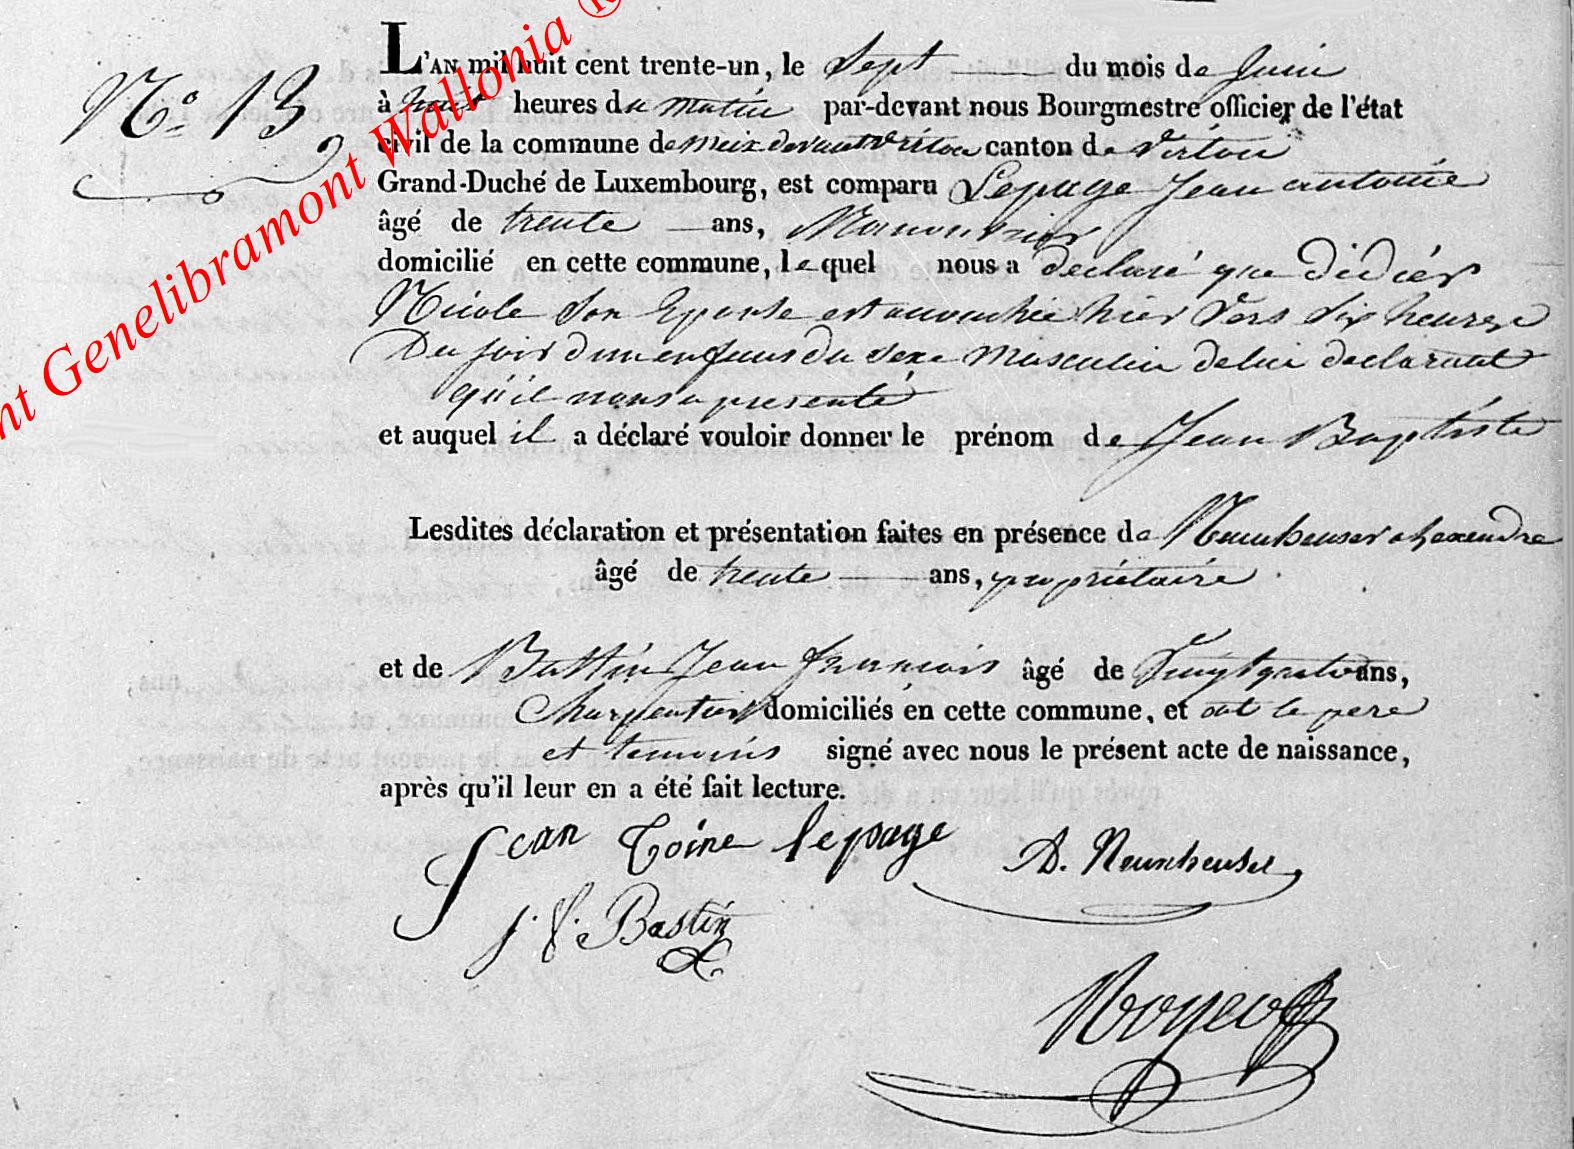 nt Genelibramont Wallonia ®
N.° 13
L'AN mil huit cent trente-un, le Sept du mois de Juin
à huit heures du matin par-devant nous Bourgmestre officier de l'état
civil de la commune de meix devant virton canton de virton
Grand-Duché de Luxembourg, est comparu Lepage Jean antoine
âgé de trente ans, Manouvrier
domicilié en cette commune, lequel nous a declaré que Didier
Nicole Son Epouse est accouchée hier vers six heures
Du soir d'un enfant du sexe masculin de lui declarant
qu'il nous a presenté
et auquel il a déclaré vouloir donner le prénom de Jean Baptiste
Lesdites déclaration et présentation faites en présence de Neunheuser alexendre
âgé de trente ans, propriétaire
et de Bastin Jean françois âgé de vingt quatre ans,
Charpentier domiciliés en cette commune, et ont le pere
et temoins signé avec nous le présent acte de naissance,
après qu'il leur en a été fait lecture.
Jean Toine lepage
A. Neunheuser
J. f. Bastin